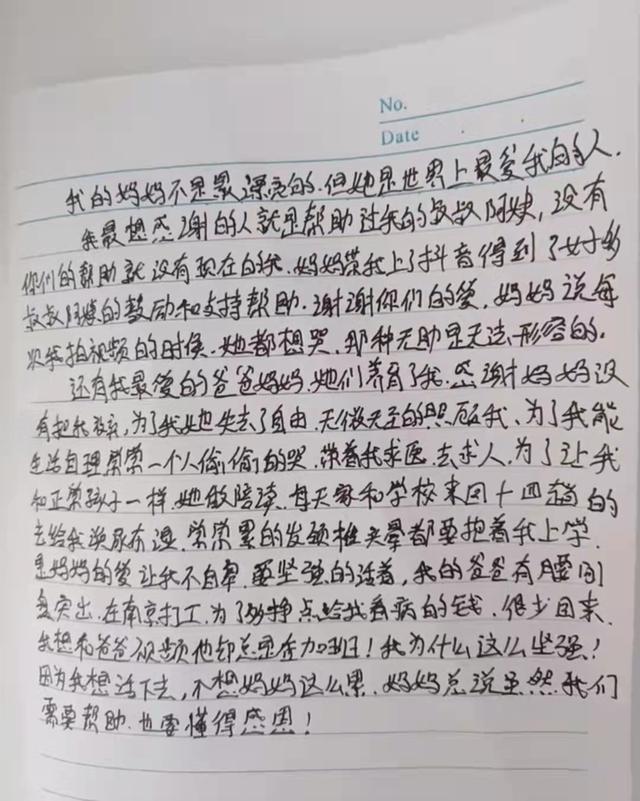 No.
Date
我的妈妈不是最漂亮的.但她是世界上最爱我的人.
我最想感谢的人就是帮助过我的叔叔阿姨,没有
你们的帮助就没有现在的我.妈妈带我上了抖音得到了好多
叔叔阿姨的鼓励和支持帮助.谢谢你们的爱,妈妈说每
次我拍视频的时候.她都想哭,那种无助是无法形容的.
还有我最爱的爸爸妈妈.她们养育了我.感谢妈妈没
有把我放弃,为了我她失去了自由.无微不至的照顾我、为了我能
生活自理常常一个人偷偷的哭.带着我求医.去求人.为了让我
和正常孩子一样.她做陪读.每天家和学校来回十四趟的
去给我换尿不湿.常常累的发颈椎头晕都要抱着我上学.
是妈妈的爱让我不自卑.要坚强的活着,我的爸爸有腰间
盘突出.在南京打工.为了多挣点给我看病的钱.很少回来.
我想和爸爸视频他却总是在加班!我为什么这么坚强!
因为我想活下去,不想妈妈这么累.妈妈总说虽然我们
需要帮助.也要懂得感恩!